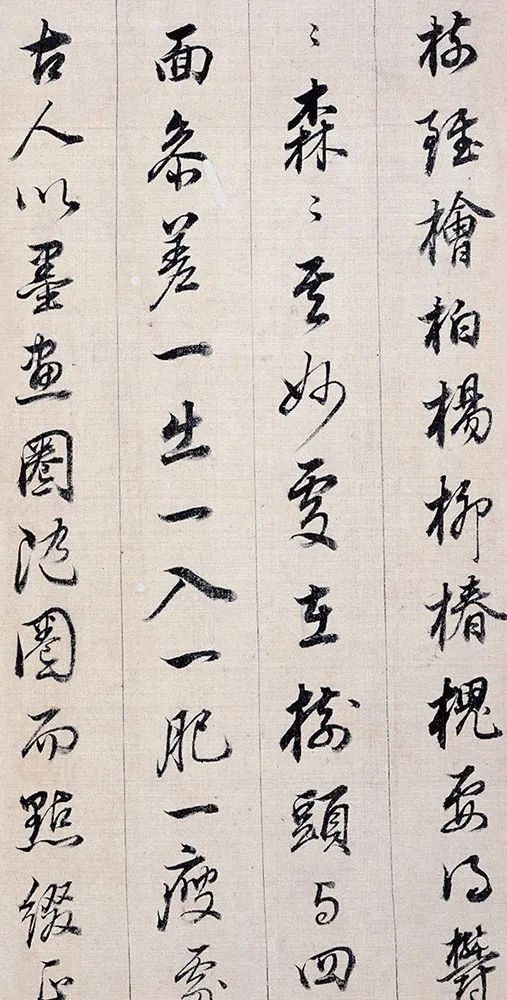 樹雖檜柏楊柳椿槐要得鬱
〻森〻其妙處在樹頭與四
面參差一出一入一肥一瘦處
古人以墨畫圈隨圈而點綴正